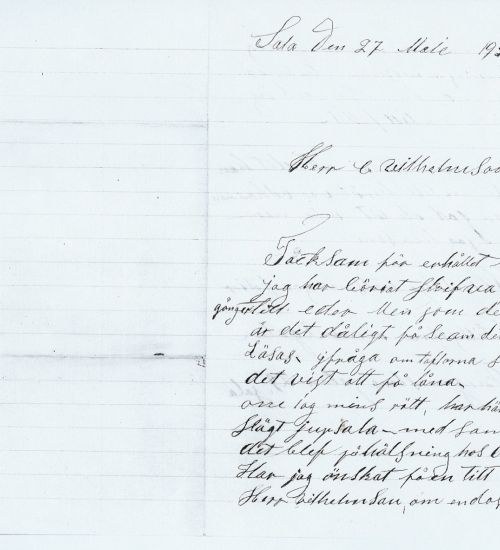 Sala Den 27 Maie 19
Herr C Vilhelmson
Täcksam för erhållet
jag har böriat skrifva
gånger till eder Men som de
är det dåligt på seam de
Läsas, yfråga om taflorna
det vist att få låna
om iag mins rätt, har
slägt jupsala med sam
det blef påhälsning hos
Har jag önskat på en titt
Herr Vilhelmsan, om endas